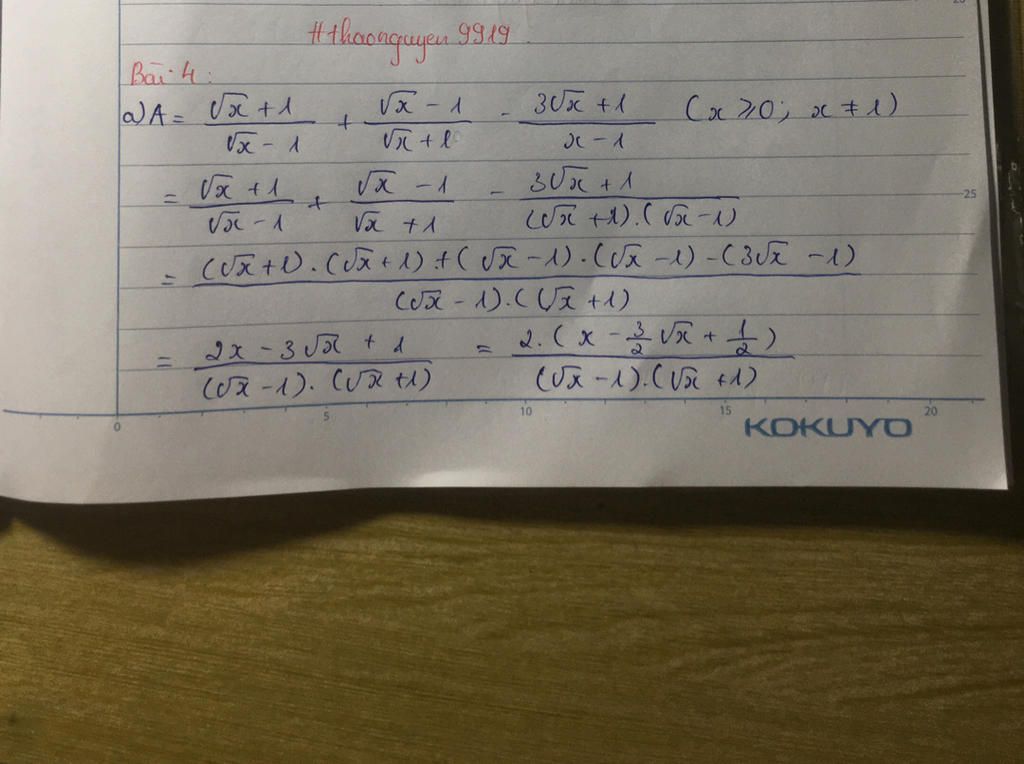 #thaonguyen 9919
Bài 4:
a) A = (√x + 1)/(√x - 1) + (√x - 1)/(√x + 1) - (3√x + 1)/(x - 1) (x ≥ 0; x ≠ 1)
= (√x + 1)/(√x - 1) + (√x - 1)/(√x + 1) - (3√x + 1)/((√x + 1).(√x - 1))
25
= ((√x + 1).(√x + 1) + (√x - 1).(√x - 1) - (3√x - 1))/((√x - 1).(√x + 1))
= (2x - 3√x + 1)/((√x - 1).(√x + 1)) = (2.(x - 3/2 √x + 1/2))/((√x - 1).(√x + 1))
0 5 10 15 20
KOKUYO